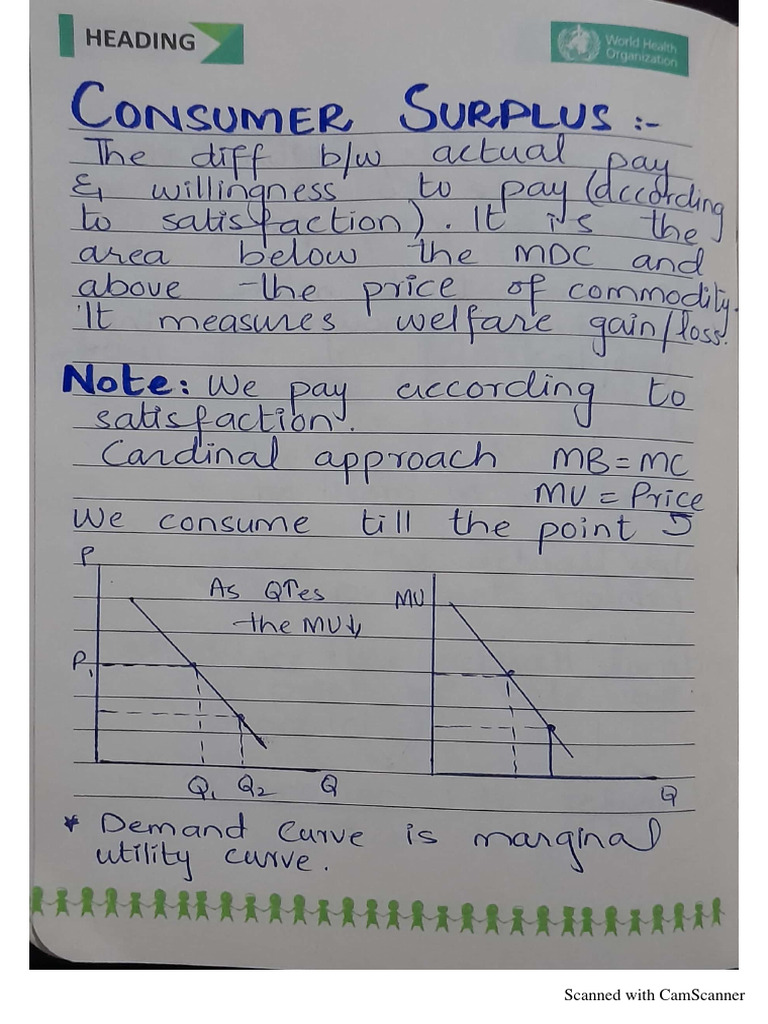 HEADING
World Health
Organization
CONSUMER SURPLUS :-
The diff b/w actual pay
& willingness to pay (according
to satisfaction). It is the
area below the MDC and
above the price of commodity.
It measures welfare gain/loss.
Note: We pay according to
satisfaction.
Cardinal approach MB = MC
MU = Price
We consume till the point
P
As Q↑es
the MU↓
P₁
Q₁ Q₂ Q
MU
Q
* Demand curve is marginal
utility curve.
Scanned with CamScanner